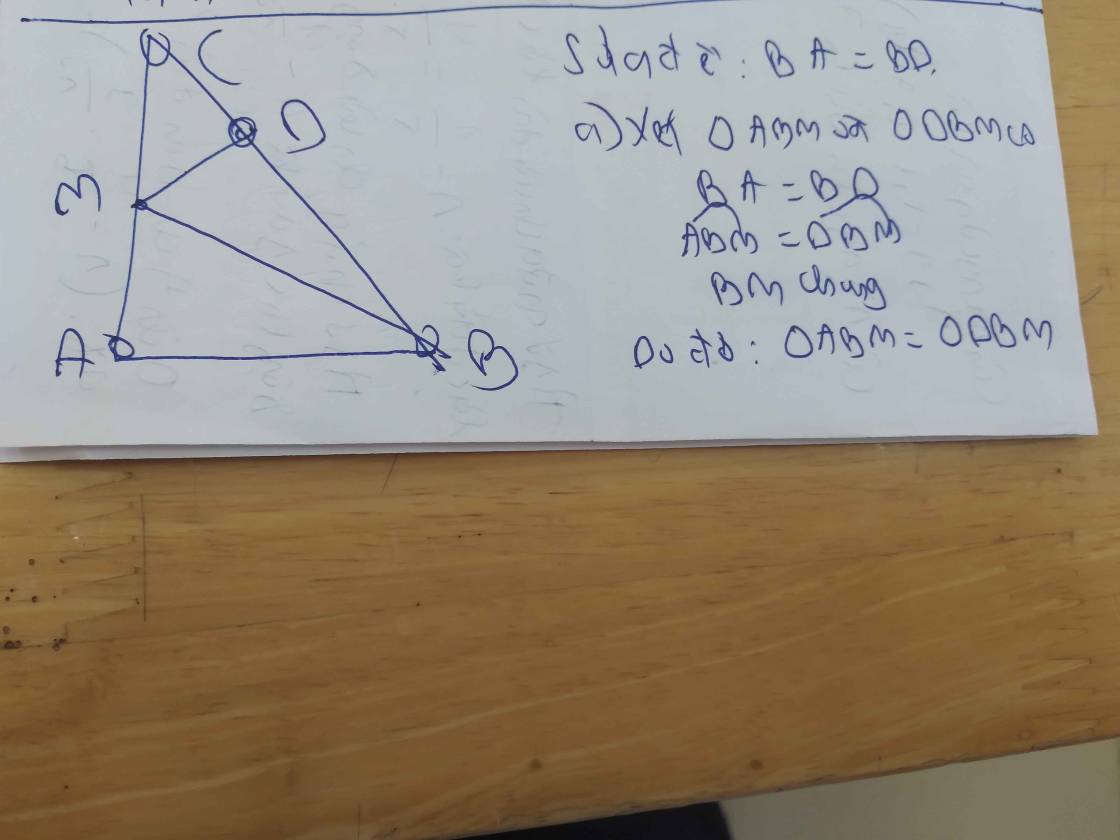 C
D
M
A
B
Sửa đề: BA = BD.
a) Xét △ABM và △DBM có
BA = BD
ABM = DBM
BM chung
Do đó: △ABM = △DBM